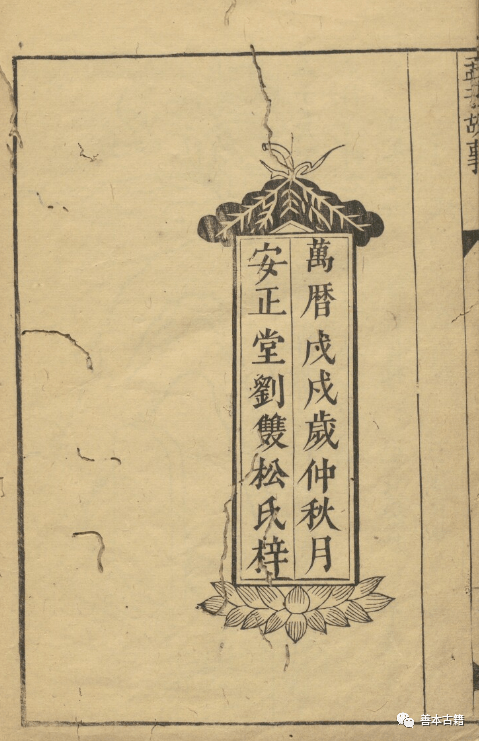 故事
萬暦戊戌歲仲秋月
安正堂劉雙松氏梓
善本古籍